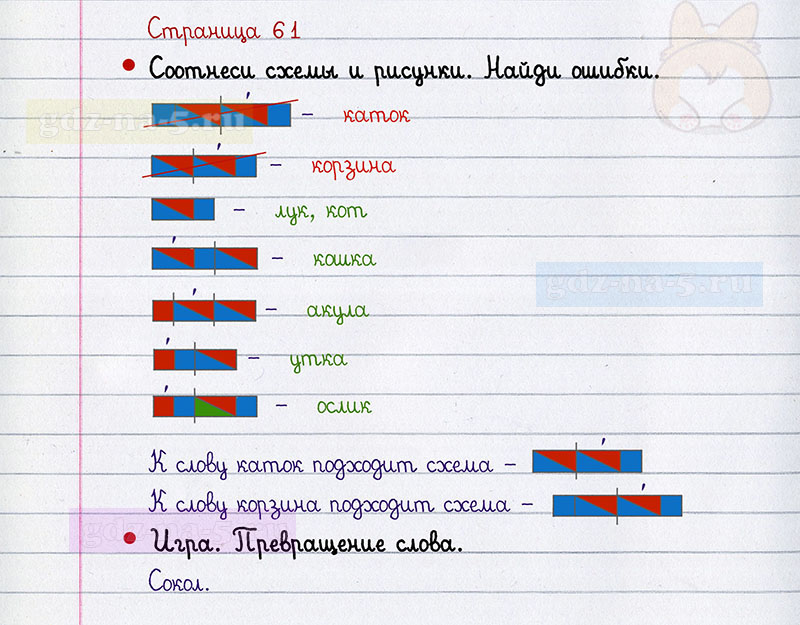 Страница 61
Соотнеси схемы и рисунки. Найди ошибки.
gdz-na-5.ru
– каток
– корзина
– лук, кот
– кошка
gdz-na-5.ru
– акула
– утка
– ослик
К слову каток подходит схема –
К слову корзина подходит схема –
gdz-na-5.ru
Игра. Превращение слова.
Сокол.